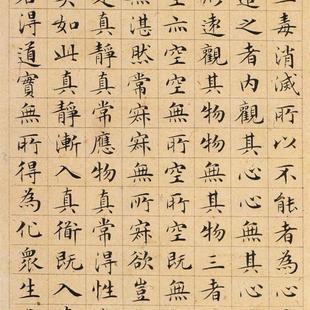 三毒消滅所以不能者為心
之者內觀其心心無其心
形遠觀其物物無其物三者
空亦空空無所空所空既無
無湛然常寂寂無所寂欲豈
是真靜真常應物真常得性
矣如此真靜漸入真衟既入真
名得道實無所得為化眾生